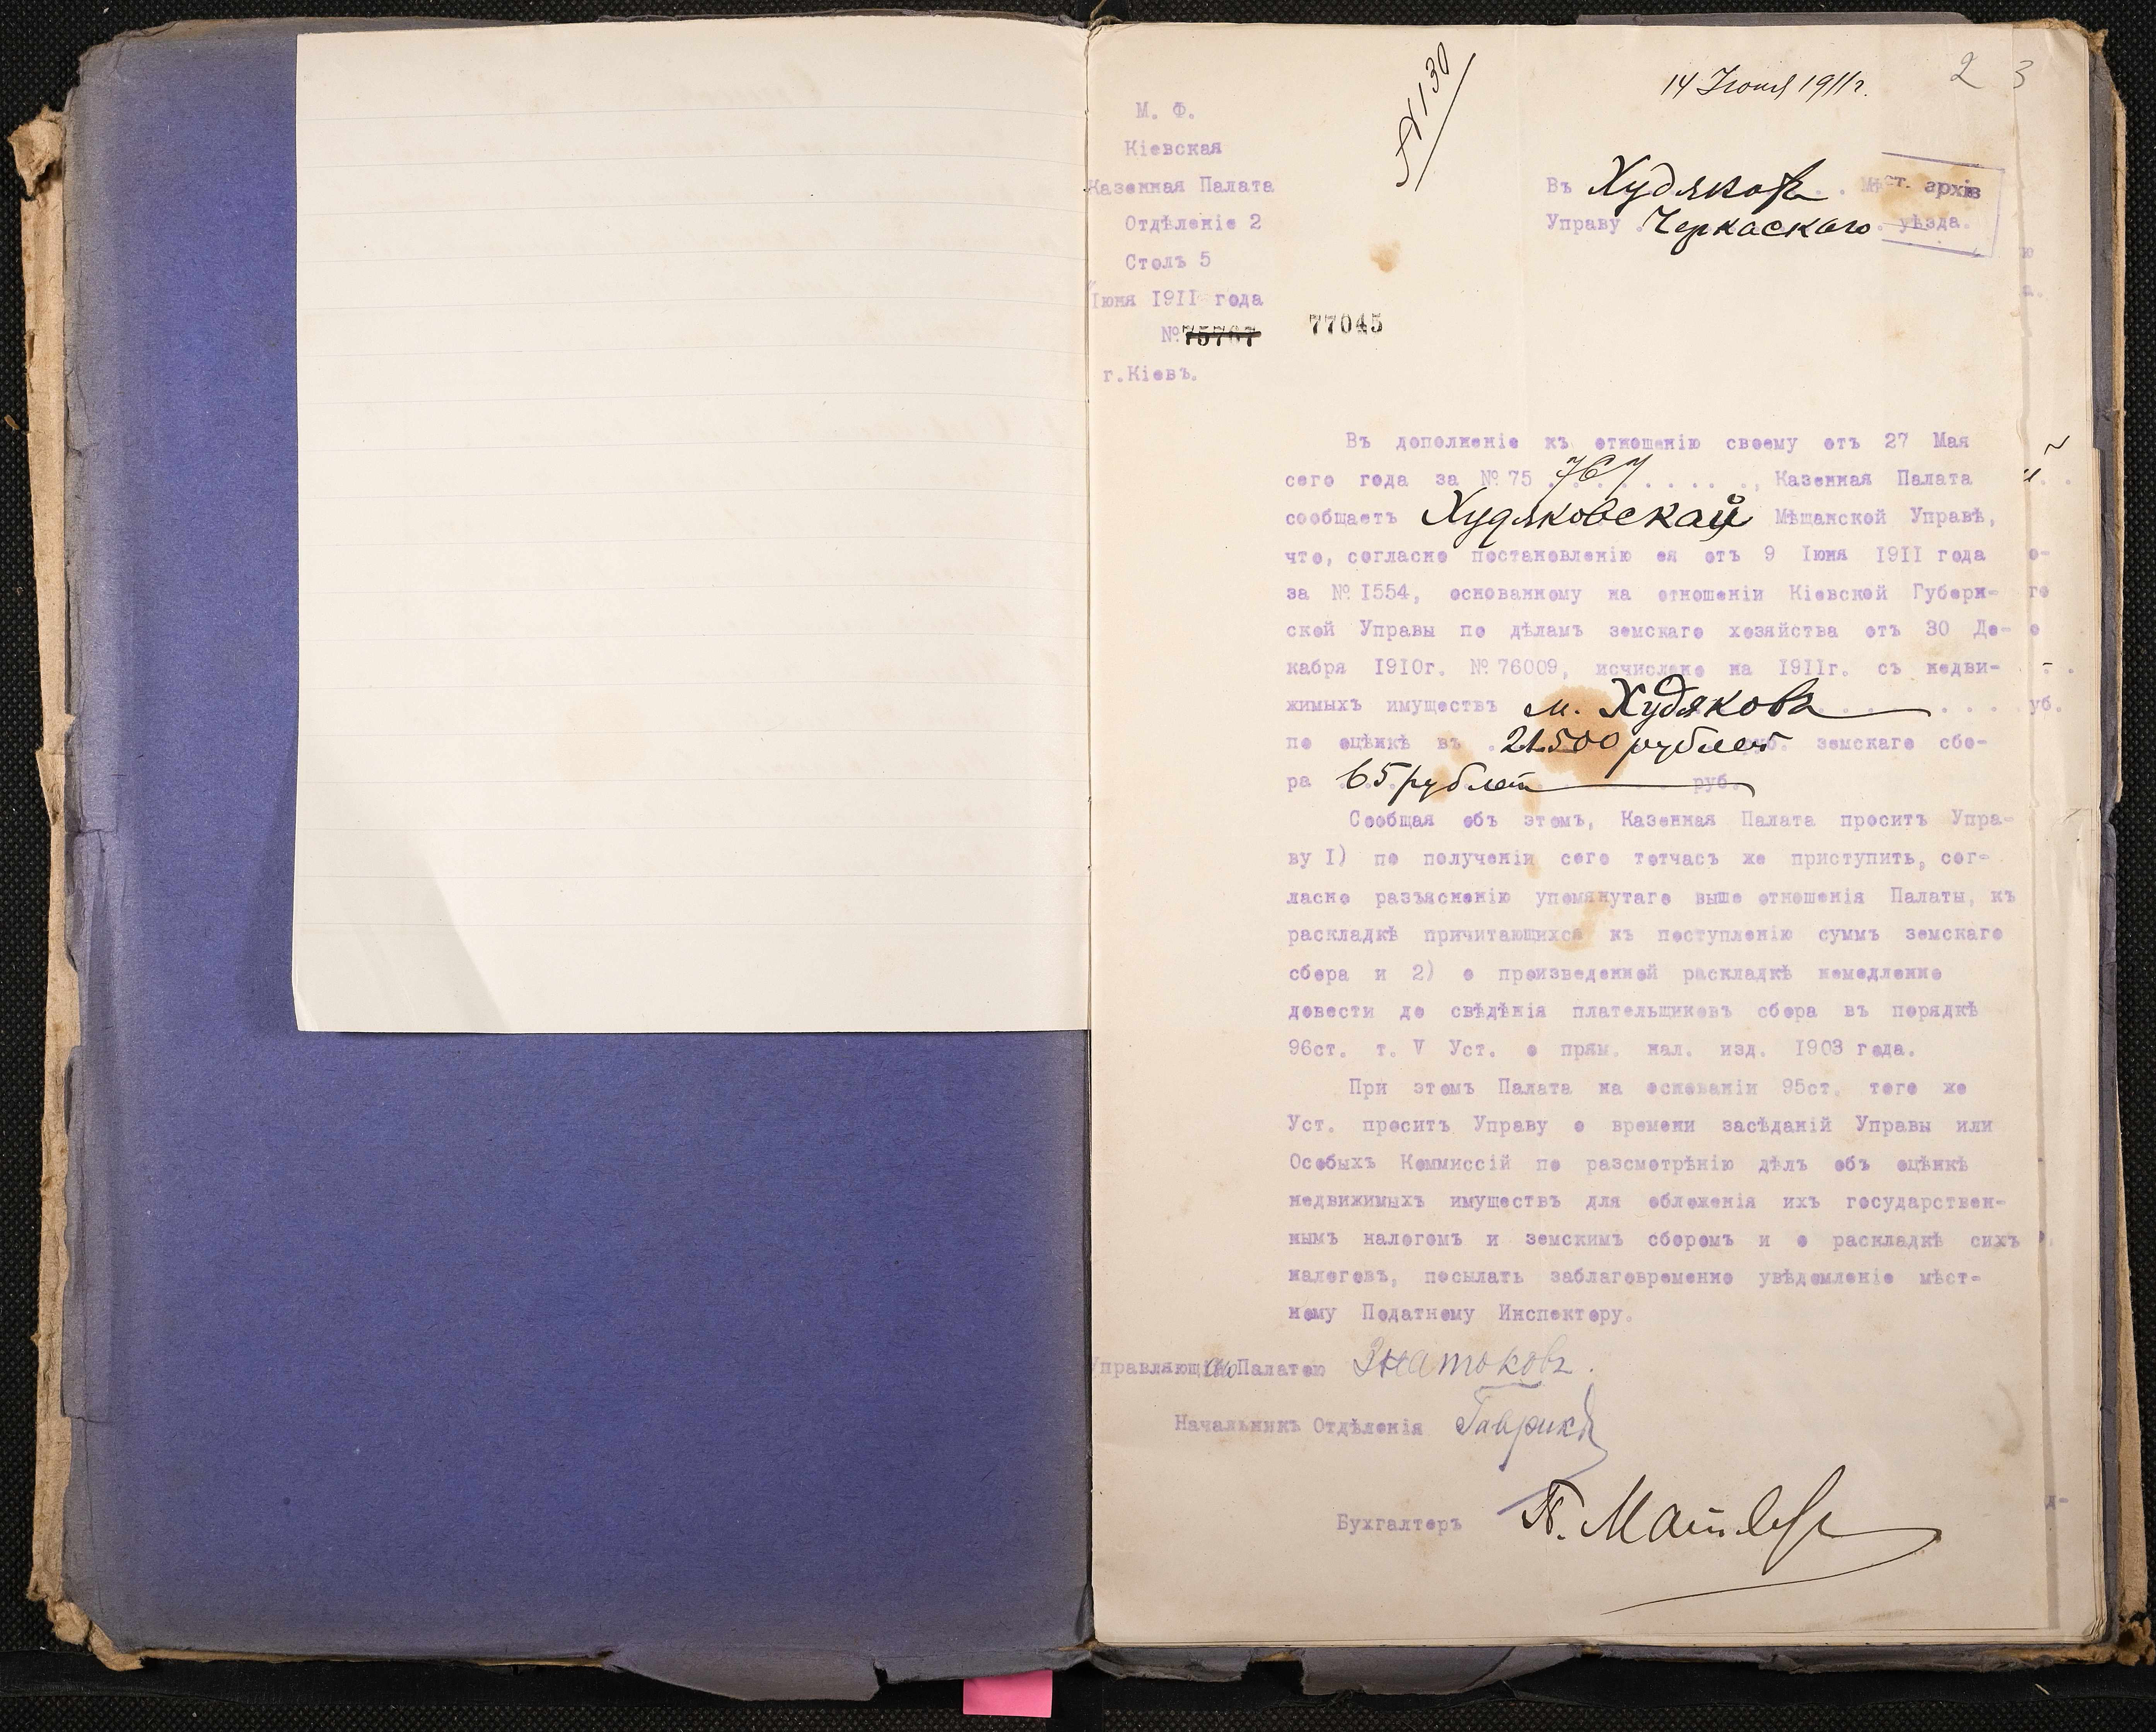 14 Іюня 1911г.
2 3
№ 1130
М. Ф.
Кіевская
Казенная Палата
Отдѣленіе 2
Столъ 5
Іюня 1911 года
№ 75767 77045
г.Кіевъ.
Въ Худяков. . . Мѣст. архів
Управу Черкаскаго уѣзда.
Въ дополненіе къ отношенію своему отъ 27 Мая
сего года за № 75 767 . . . . , Казенная Палата
сообщаетъ Худяковской Мѣщанской Управѣ,
что, согласно постановленію ея отъ 9 Іюня 1911 года
за № 1554, основанному на отношеніи Кіевской Губерн-
ской Управы по дѣламъ земскаго хозяйства отъ 30 Де-
кабря 1910г. № 76009, исчислено на 1911г. съ недви-
жимыхъ имуществъ м. Худякова . . . .
по оцѣнкѣ въ 21500 рублей руб. земскаго сбо-
ра 65 рублей руб.
Сообщая объ этомъ, Казенная Палата проситъ Упра-
ву 1) по полученіи сего тотчасъ же приступить, сог-
ласно разъясненію упомянутаго выше отношенія Палаты, къ
раскладкѣ причитающихся къ поступленію суммъ земскаго
сбора и 2) о произведенной раскладкѣ немедленно
довести до свѣдѣнія плательщиковъ сбора въ порядкѣ
96ст. т. V Уст. о прям. нал. изд. 1903 года.
При этомъ Палата на основаніи 95ст. того же
Уст. проситъ Управу о времени засѣданій Управы или
Особыхъ Коммиссій по разсмотрѣнію дѣлъ объ оцѣнкѣ
недвижимыхъ имуществъ для обложенія ихъ государствен-
нымъ налогомъ и земскимъ сборомъ и о раскладкѣ сихъ
налоговъ, посылать заблаговременно увѣдомленіе мѣст-
ному Податному Инспектору.
Управляющій Палатою Знатоковъ.
Начальникъ Отдѣленія Гаврик
Бухгалтеръ